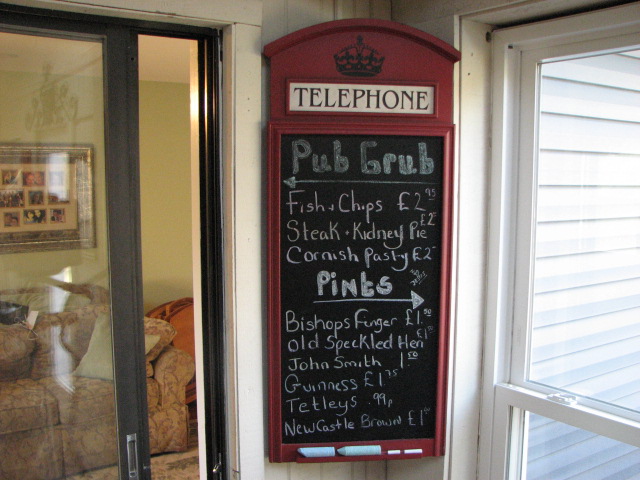 TELEPHONE
Pub Grub
Fish + Chips £2.95
Steak + Kidney Pie £2
Cornish Pasty £2
Pints
Bishops Finger £1.50
Old Speckled Hen £1
John Smith 1.50
Guinness £1.75
Tetleys .99p
NewCastle Brown £1